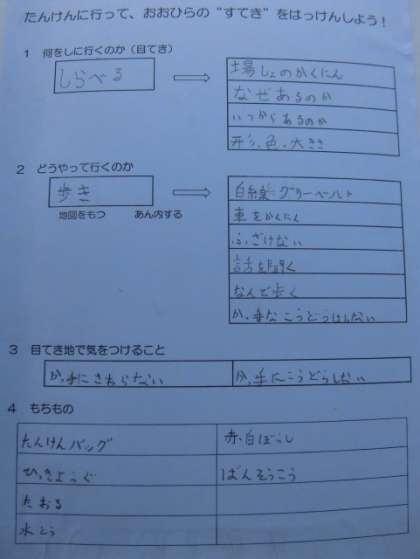 たんけんに行って、おおひらの"すてき"をはっけんしよう！
1 何をしに行くのか（目てき）
しらべる
場しょのかくにん
なぜあるのか
いつからあるのか
形、色、大きさ
2 どうやって行くのか
歩き
地図をもつ あん内する
白線グリーンベルト
車をかくにん
ふざけない
話を聞く
なんで歩く
かっ手なこうどうはしない
3 目てき地で気をつけること
かっ手にさわらない
かっ手にこうどうしない
4 もちもの
たんけんバッグ
赤白ぼうし
ひっきようぐ
ばんそうこう
たおる
水とう